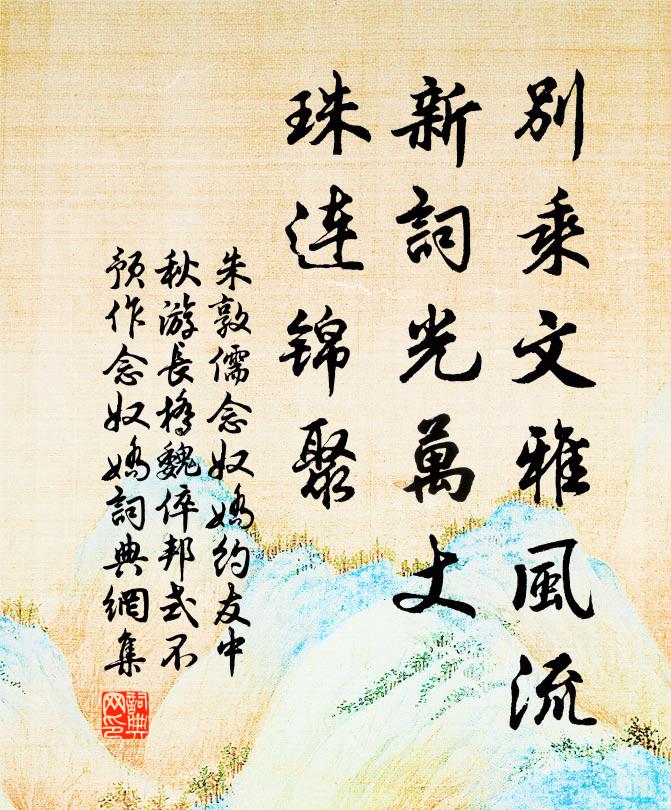 別乘文雅風流
新詞光萬丈
珠连锦聚
朱敦儒念奴嬌約友中
秋游長橋魏倅邦式不
預作念奴嬌詞典網集
詞典
网印